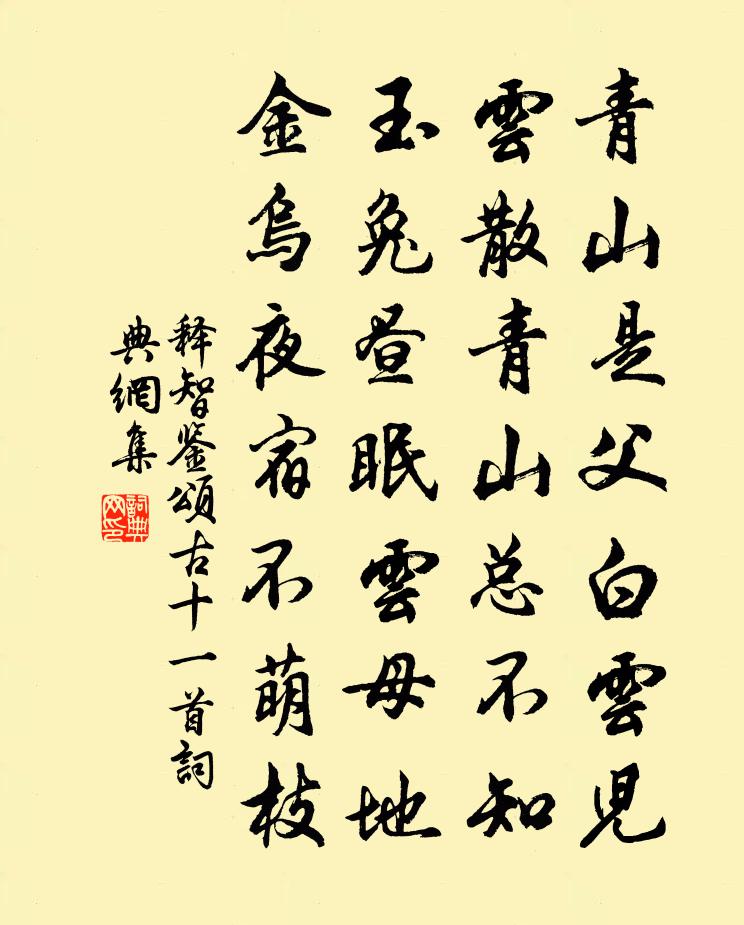 青山是父白雲児
雲散青山总不知
玉兔昼眠雲母地
金烏夜宿不萌枝
释智鉴頌古十一首詞
典網集
詞典
网印